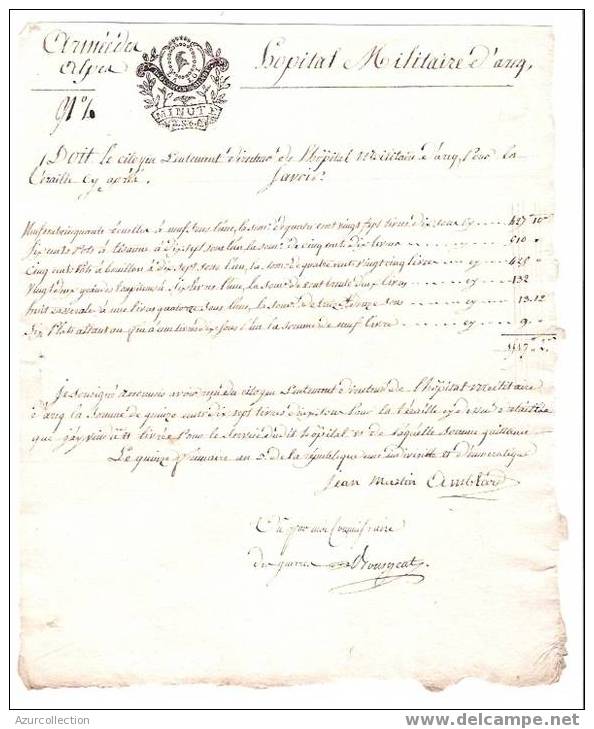 Armée des
Alpes
Hopital Militaire d'arq.
MINUT
91 %
Doit le citoyen Lieutement directeur de l'hôpital Militaire d'arq. pour la
savoir
la somme de quatre cent vingt sept livres dix sous cy 427 " 10
Six cents Pots à tisanne à dix sept sous l'un la somme de cinq cent dix livres 510 "
Cinq cent Pots à bouillon à dix sept sous l'un, la somme de quatre cent vingt cinq livres cy 425 "
Vingt deux grandes soupieres à six livres l'une, la somme de cent trente deux livres cy 132
huit casserole à une livres quatorze sous l'une, la somme de treize livres douze sous cy 13. 12
Six Plats à une livres dix sous l'un la somme de neuf livre cy 9 "
Je soussigné avoir reçu du citoyen Lieutement directeur de l'hôpital Militaire
d'arq la somme de quinze cents dix sept livres deux sous pour la
que j'ay livrée pour le service dudit hôpital et de laquelle somme quittance
Le quinze frimaire an 3e de la république une indivisible et démocratique
Jean Martin Amblard
Vu par moi Commissaire
des guerres
Azurcollection
www.delcampe.net